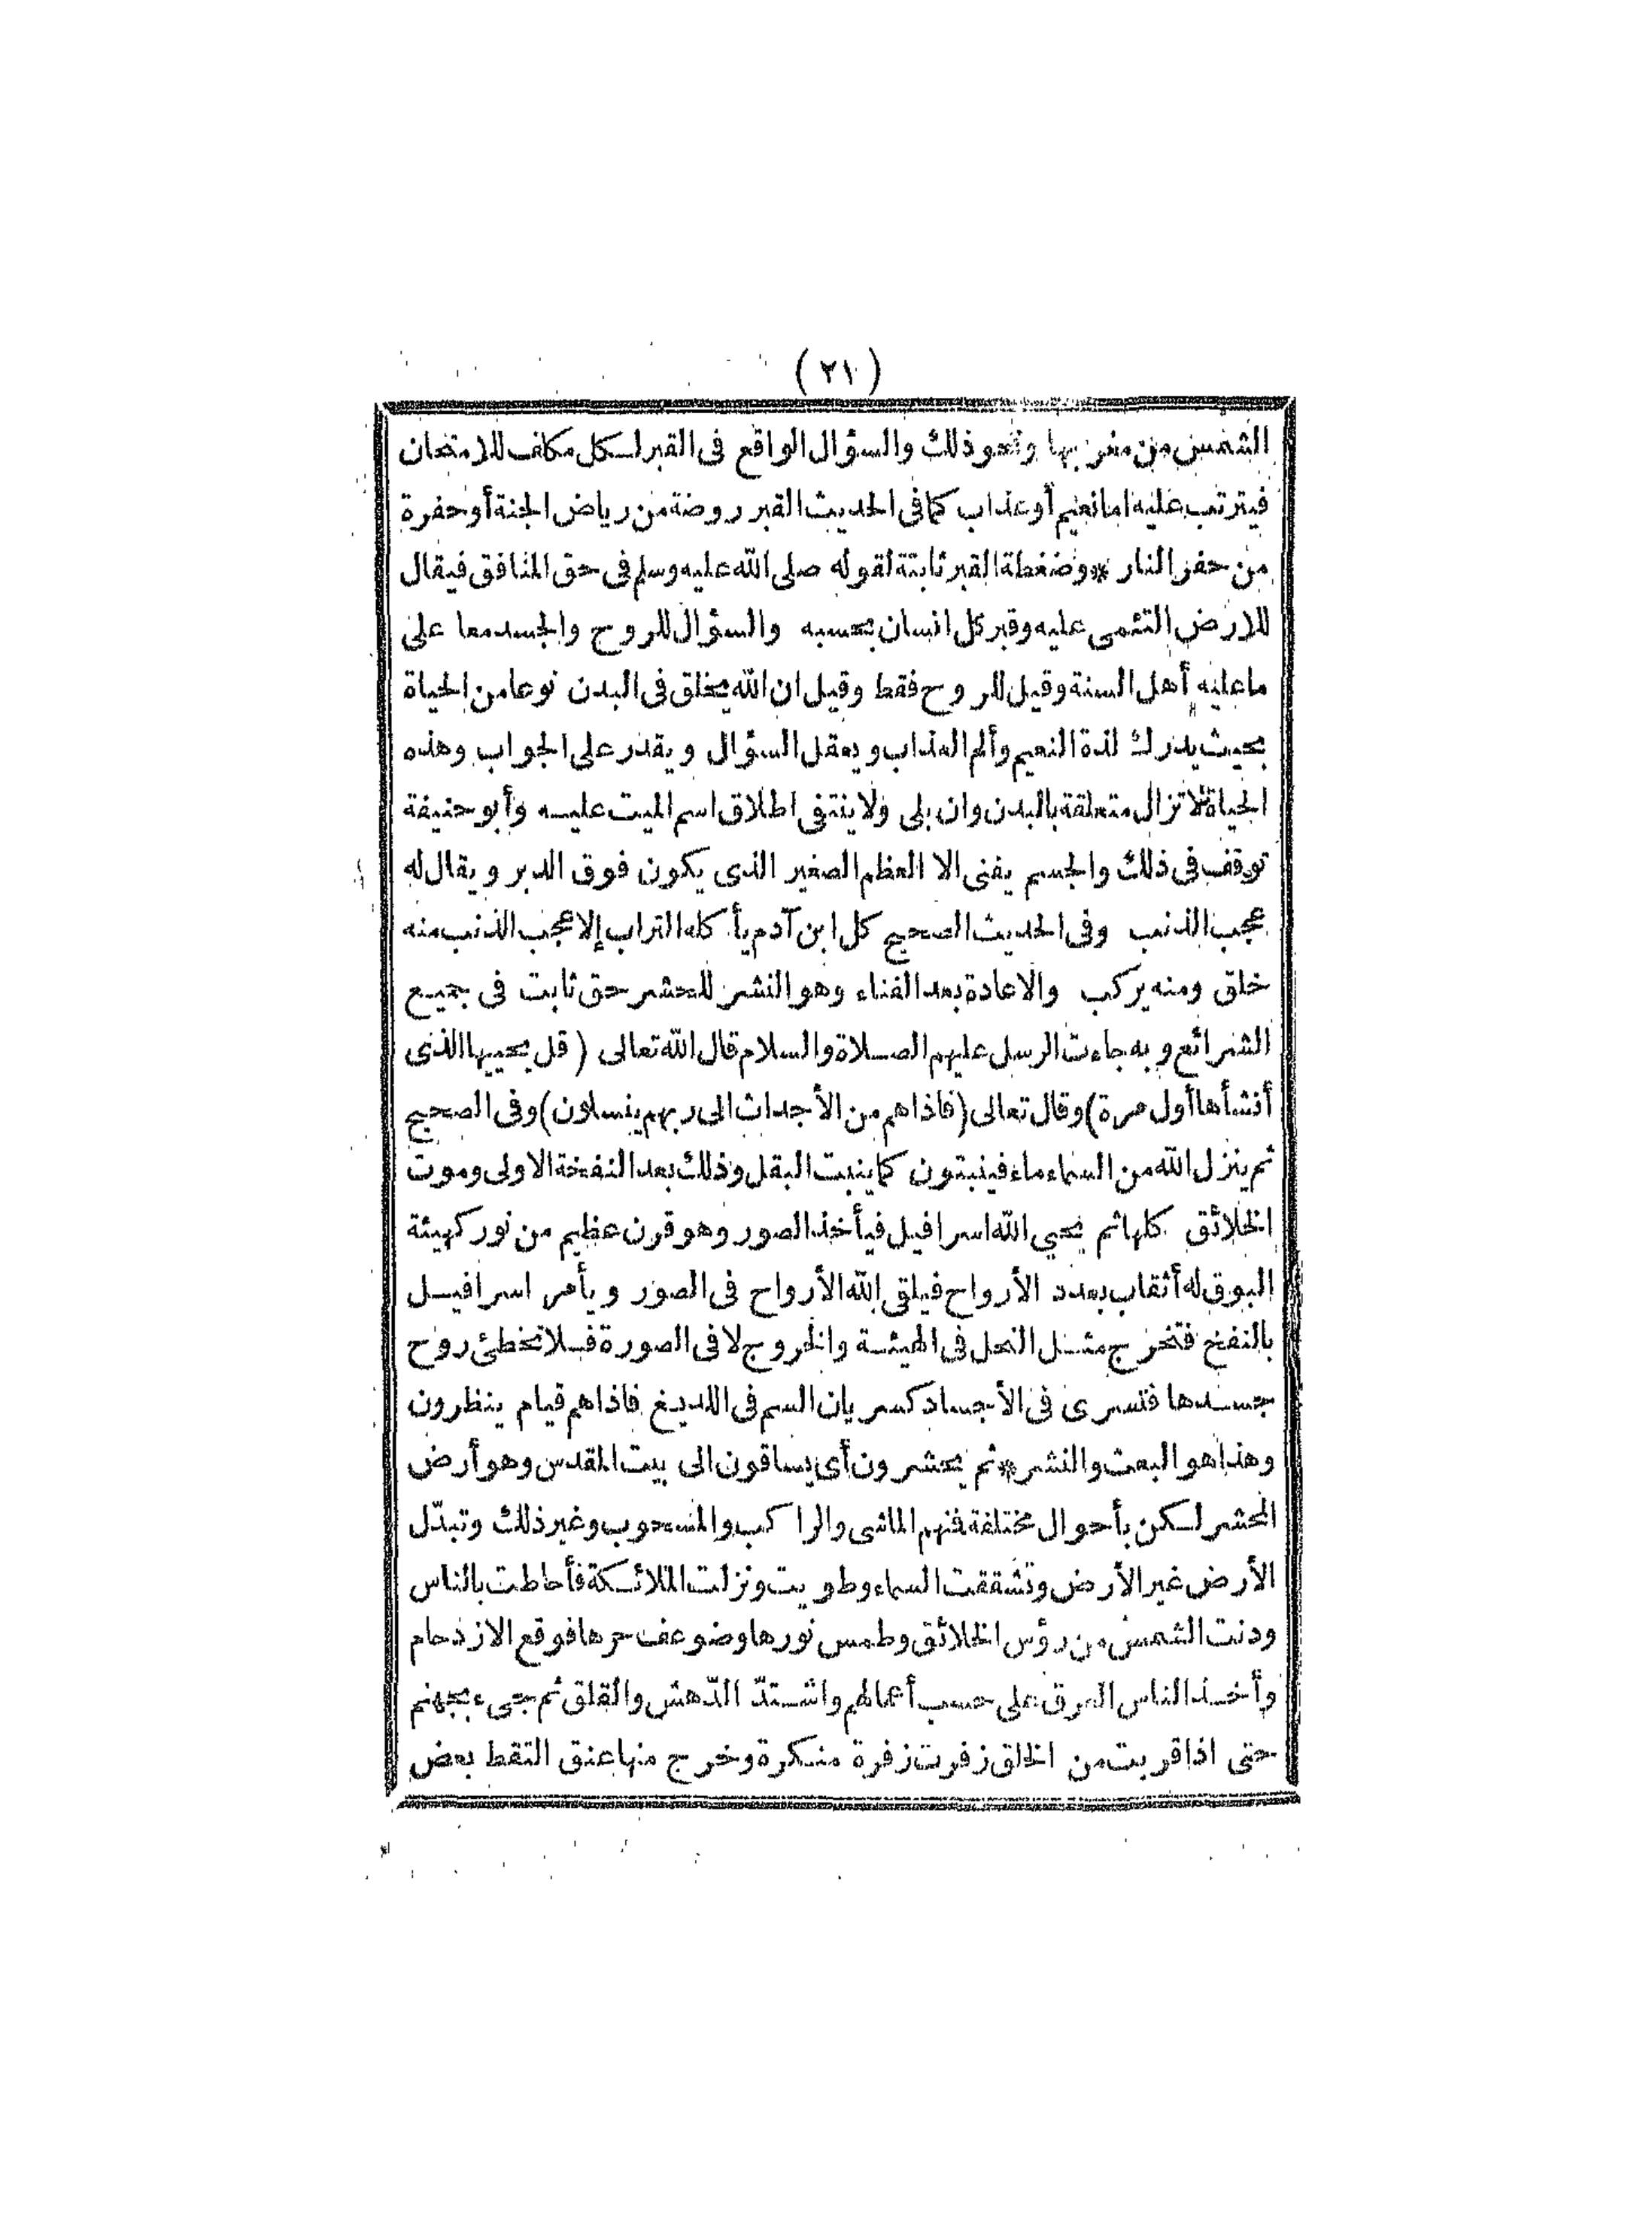 (٢١)
الشمس من مغربها ونحو ذلك والسؤال الواقع فى القبر لكل مكلف للامتحان
فيترتب عليه اما نعيم أو عذاب كما فى الحديث القبر روضة من رياض الجنة أو حفرة
من حفر النار * وضغطة القبر ثابتة لقوله صلى الله عليه وسلم فى حق المنافق فيقال
للارض التئمى عليه وقبر كل انسان بحسبه والسؤال للروح والجسد معا على
ما عليه أهل السنة وقيل للروح فقط وقيل ان الله يخلق فى البدن نوعا من الحياة
بحيث يدرك لذة النعيم وألم العذاب ويعقل السؤال ويقدر على الجواب وهذه
الحياة لا تزال متعلقة بالبدن وان بلى ولا ينتفى اطلاق اسم الميت عليه وأبو حنيفة
توقف فى ذلك والجسم يفنى الا العظم الصغير الذى يكون فوق الدبر ويقال له
عجب الذنب وفى الحديث الصحيح كل ابن آدم يأكله التراب إلا عجب الذنب منه
خلق ومنه يركب والاعادة بعد الفناء وهو النشر للحشر حق ثابت فى جميع
الشرائع وبه جاءت الرسل عليهم الصلاة والسلام قال الله تعالى (قل يحييها الذى
أنشأها أول مرة) وقال تعالى (فاذا هم من الأجداث الى ربهم ينسلون) وفى الصحيح
ثم ينزل الله من السماء ماء فينبتون كما ينبت البقل وذلك بعد النفخة الاولى وموت
الخلائق كلها ثم يحيي الله اسرافيل فيأخذ الصور وهو قرن عظيم من نور كهيئة
البوق له أثقاب بعدد الأرواح فيلقى الله الأرواح فى الصور ويأمر اسرافيل
بالنفخ فتخرج مثل النحل فى الهيئة والخروج لا فى الصورة فلا تخطئ روح
جسدها فتسرى فى الأجساد كسريان السم فى اللديغ فاذا هم قيام ينظرون
وهذا هو البعث والنشر * ثم يحشرون أى يساقون الى بيت المقدس وهو أرض
المحشر لكن بأحوال مختلفة فمنهم الماشى والراكب والمسحوب وغير ذلك وتبدّل
الأرض غير الأرض وتشققت السماء وطويت ونزلت الملائكة فأحاطت بالناس
ودنت الشمس من رؤس الخلائق وطمس نورها وضوعف حرها فوقع الازدحام
وأخذ الناس العرق على حسب أعمالهم واشتدّ الدّهش والقلق ثم جىء بجهنم
حتى اذا قربت من الخلق زفرت زفرة منكرة وخرج منها عنق التقط بعض